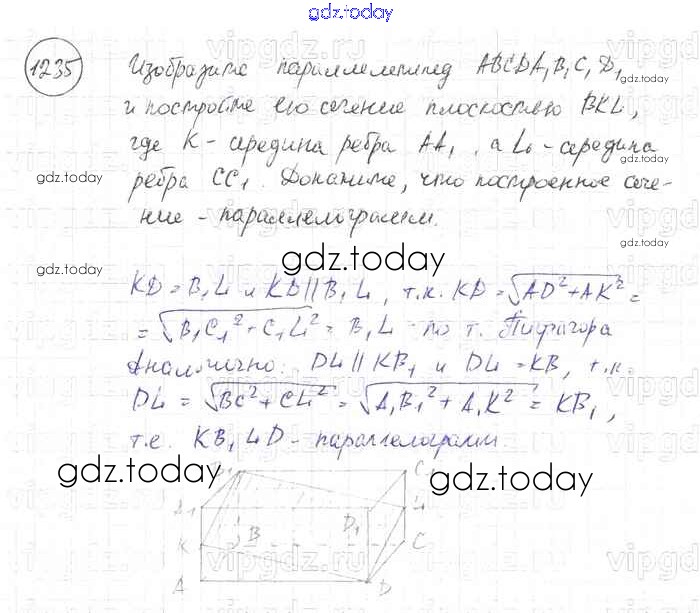 gdz.today
1235 Изобразите параллелепипед ABCDA₁B₁C₁D₁
gdz.today
и постройте его сечение плоскостью BKL,
где K - середина ребра AA₁, а L - середина
gdz.today
ребра CC₁. Докажите, что построенное сече-
gdz.today
ние - параллелограмм.
gdz.today
gdz.today
gdz.today
KD = B₁L и KD || B₁L, т.к. KD = √AD²+AK² =
= √B₁C₁²+C₁L² = B₁L - по т. Пифагора
Аналогично: DL || KB₁ и DL = KB, т.к.
DL = √BC²+CL² = √A₁B₁²+A₁K² = KB₁,
т.е. KB₁LD - параллелограмм
gdz.today
gdz.today
B₁ C₁
A₁ D₁ L
K B C
A D